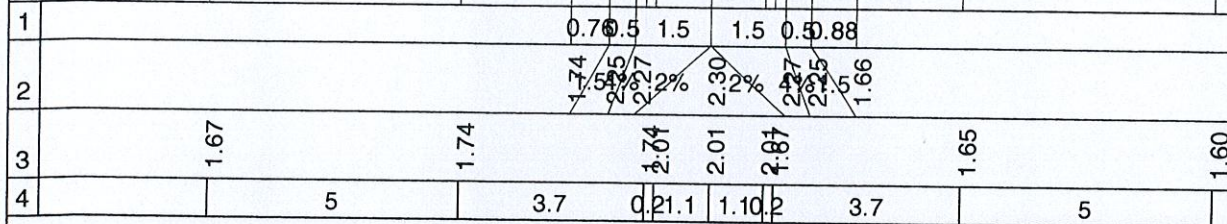 1 0.76 0.5 1.5 1.5 0.5 0.88
2 1.74 1:5 2.25 4% 2.27 2% 2.30 2% 2.27 4% 2.25 1:5 1.66
3 1.67 1.74 1.74 2.01 2.01 2.01 1.87 1.65 1.60
4 5 3.7 0.2 1.1 1.1 0.2 3.7 5